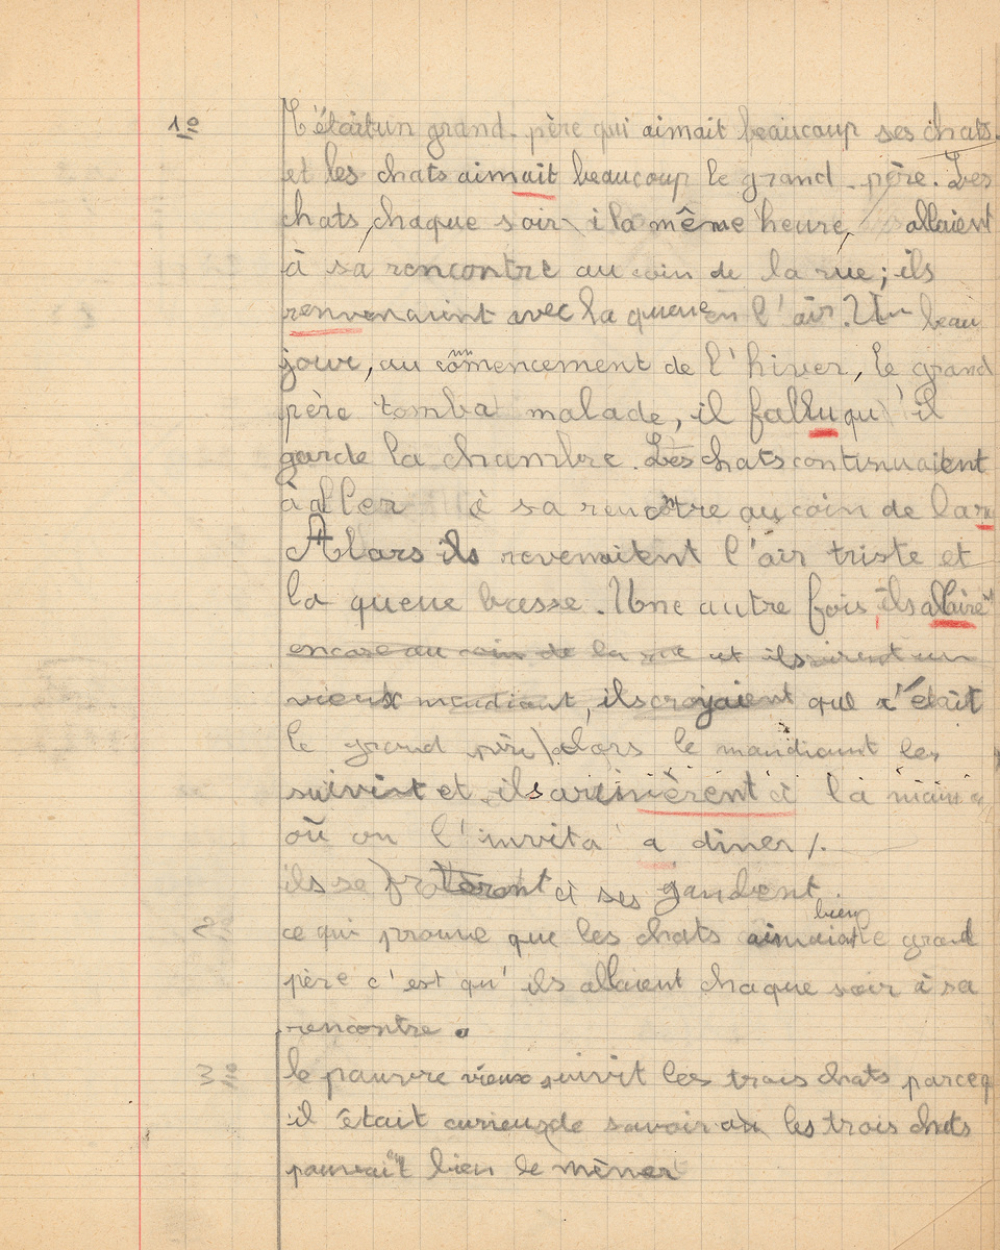 1º C'était un grand-père qui aimait beaucoup ses chats
et les chats aimait beaucoup le grand-père. Les
chats, chaque soir à la même heure, allaient
à sa rencontre au coin de la rue; ils
renvenaient avec la queue en l'air. Un beau
jour, au commencement de l'hiver, le grand
père tomba malade, il fallu qu'il
garde la chambre. Les chats continuaient
à aller à sa rencontre au coin de la r
Alors ils revenaient l'air triste et
la queue basse. Une autre fois ils
encore au coin de la rue et ils virent un
vieux mendiant, ils croyaient que c'était
le grand père alors le mandiant les
suivit et ils à la
où on l'invita a diner.
ils se à ses
2º ce qui prouve que les chats aimaient bien le grand
père c'est qu'ils allaient chaque soir à sa
rencontre.
3º le pauvre vieux suivit les trois chats parceq
il était curieux de savoir où les trois chats
pouvait bien le mener